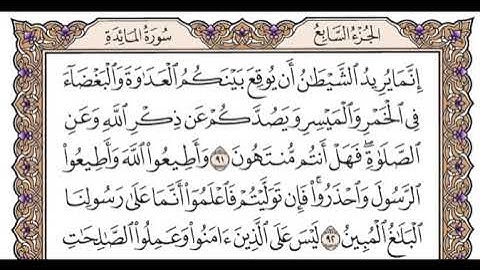 الجزء السابع سورة المائدة
إِنَّمَا يُرِيدُ الشَّيْطَٰنُ أَن يُوقِعَ بَيْنَكُمُ الْعَدَٰوَةَ وَالْبَغْضَآءَ
فِى الْخَمْرِ وَالْمَيْسِرِ وَيَصُدَّكُمْ عَن ذِكْرِ اللَّهِ وَعَنِ
الصَّلَوٰةِ ۖ فَهَلْ أَنتُم مُّنتَهُونَ ٩١ وَأَطِيعُوا۟ اللَّهَ وَأَطِيعُوا۟
الرَّسُولَ وَاحْذَرُوا۟ ۚ فَإِن تَوَلَّيْتُمْ فَاعْلَمُوٓا۟ أَنَّمَا عَلَىٰ رَسُولِنَا
الْبَلَٰغُ الْمُبِينُ ٩٢ لَيْسَ عَلَى الَّذِينَ ءَامَنُوا۟ وَعَمِلُوا۟ الصَّٰلِحَٰتِ